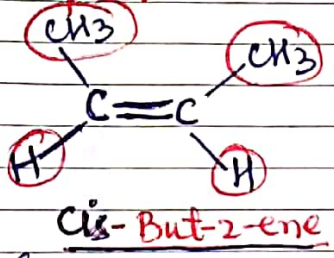 CH3 CH3
C=C
H H
Cis-But-2-ene